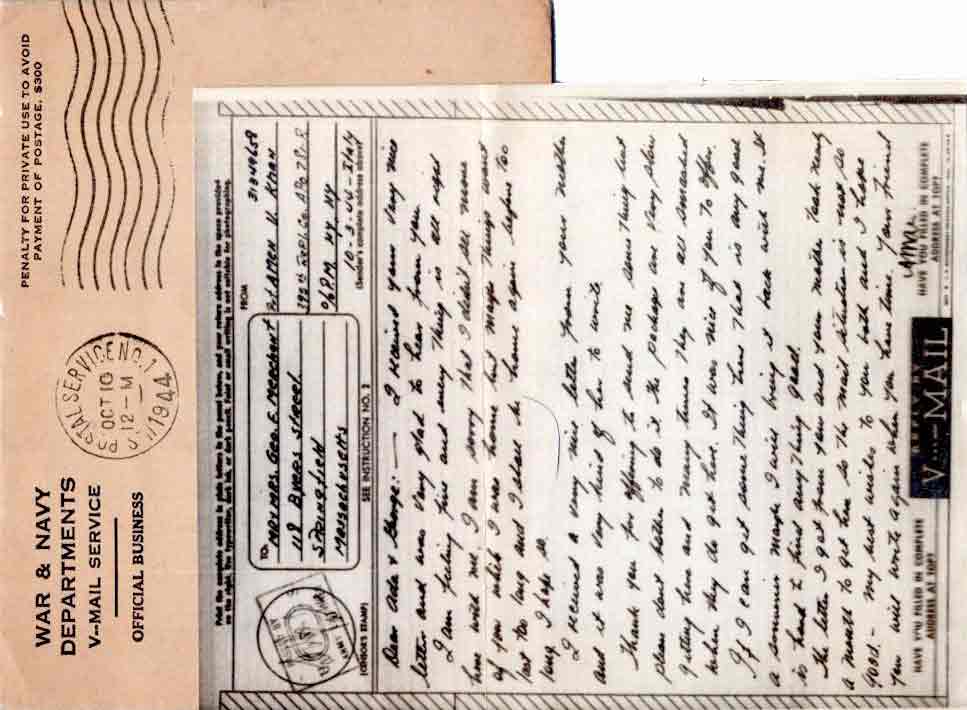 WAR & NAVY
DEPARTMENTS
V-MAIL SERVICE
OFFICIAL BUSINESS
U.S. POSTAL SERVICE NO. 1
OCT 10
12-M
1944
PENALTY FOR PRIVATE USE TO AVOID
PAYMENT OF POSTAGE, $300
Print the complete address in plain letters in the panel below, and your return address in the space provided
on the right. Use typewriter, dark ink, or dark pencil. Faint or small writing is not suitable for photographing.
TO
MR & MRS. GEO. E.
118 Byers Street
Springfield
Massachusetts
FROM
31349658
392nd
A.P.O. 782
% P.M. NY NY
10-3-44-Italy
(Sender's complete address above)
(CENSOR'S STAMP)
SEE INSTRUCTION NO. 2
Dear Ada & George: — I received your very nice
letter and was very glad to hear from you.
I am feeling fine and every thing is all right
here with me. I am sorry that I didn't see more
of you while I was home but maybe things wont
last too long and I shall be home again before too
long I hope so.
I received a very nice letter from your mother
and it was very kind of her to write
Thank you for offering to send me something but
please don't bother to do it the packages are very slow
getting here and many times they are all smashed
when they do get here. It was nice of you to offer.
If I can get some thing here that is any good
a souvenir maybe I will bring it back with me. It
is hard to find anything good.
The letter I got from you and your mother took nearly
a month to get here so the mail situation is not so
good — my best wishes to you both and I hope
you will write again when you have time. Your friend
HAVE YOU FILLED IN COMPLETE
ADDRESS AT TOP?
V - MAIL
HAVE YOU FILLED IN COMPLETE
ADDRESS AT TOP?